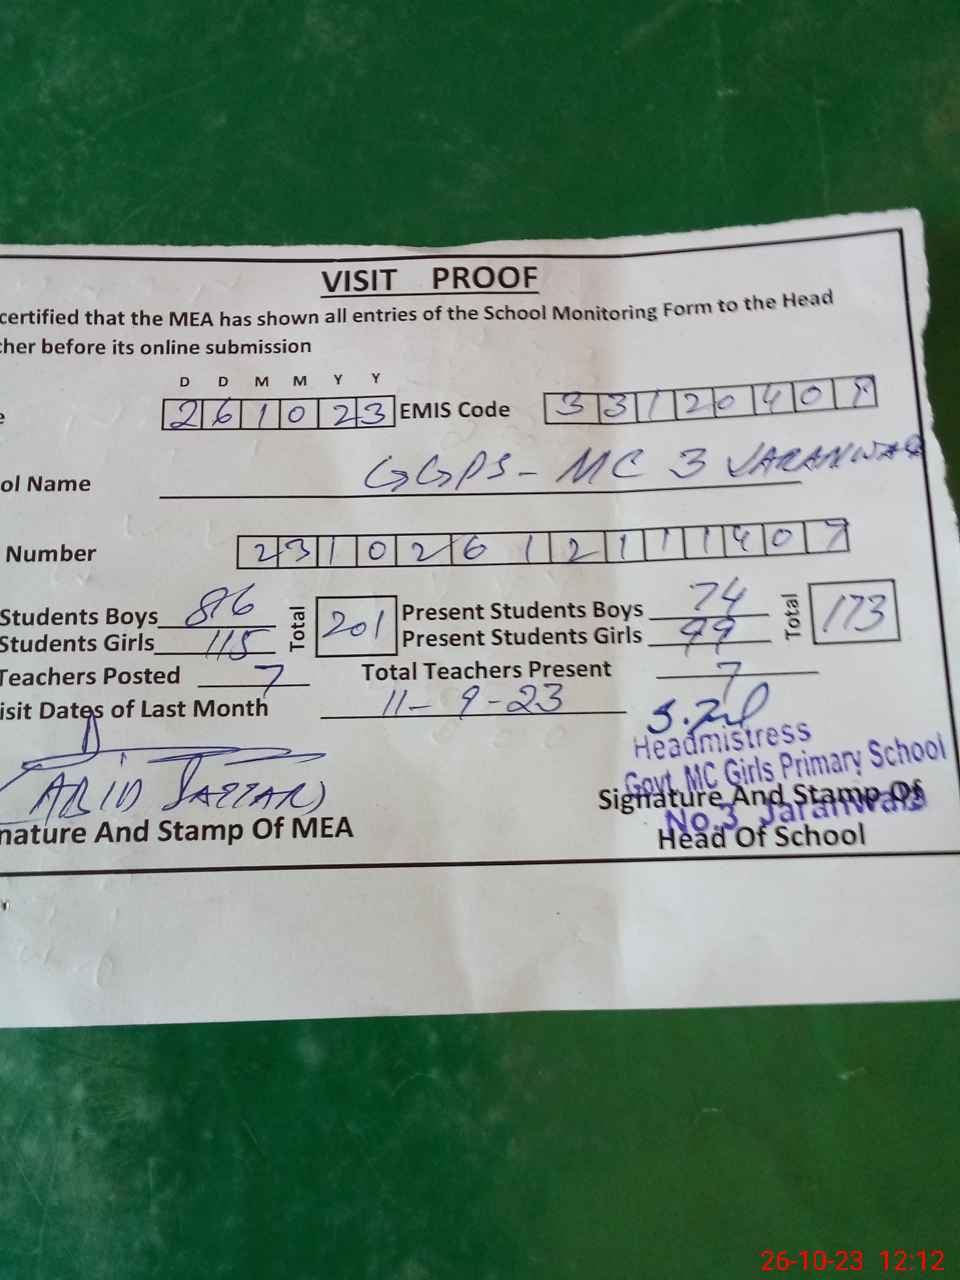 VISIT PROOF
certified that the MEA has shown all entries of the School Monitoring Form to the Head
cher before its online submission
D D M M Y Y
e 261023 EMIS Code 3312040
ol Name GGPS - MC 3 JARANWALA
Number 23102612111407
Students Boys 86 Total 201 Present Students Boys 74 Total 173
Students Girls 115 Present Students Girls 99
Teachers Posted 7 Total Teachers Present 7
isit Dates of Last Month 11-9-23
Headmistress
Govt. MC Girls Primary School
No.3 Jaranwala
(ABID
nature And Stamp Of MEA
Signature And Stamp Of
Head Of School
26-10-23 12:12